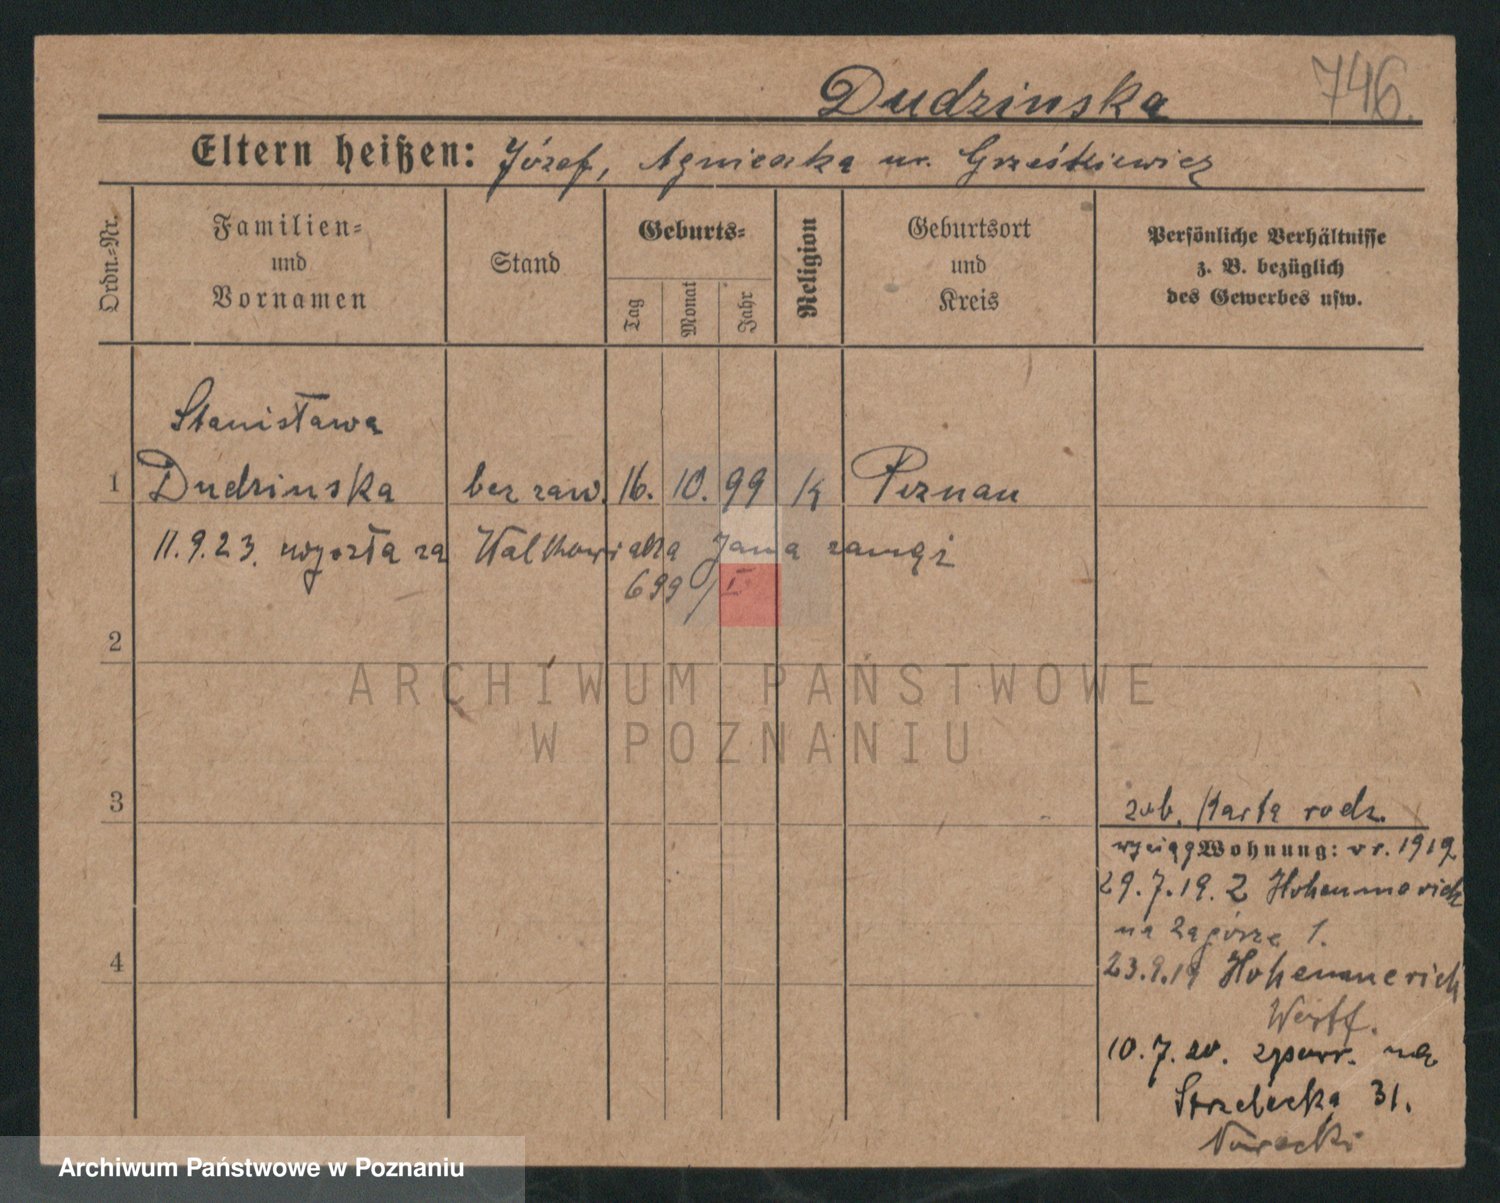 Dudzinska 746.
Eltern heißen: Józef, Agnieszka ur. Grześkiewicz
Ordn.-Nr.
Familien-
und
Vornamen
Stand
Geburts-
Tag
Monat
Jahr
Religion
Geburtsort
und
Kreis
Persönliche Verhältnisse
z. B. bezüglich
des Gewerbes usw.
Stanisława
1 Dudzinska bez zaw. 16. 10. 99 K Poznan
11.9.23. wyszła za Walkowiaka Jana zamąż
699/I
2
ARCHIWUM PAŃSTWOWE
W POZNANIU
3
zob. Karta rodz.
wyciąg Wohnung: v r. 1919
29.7.19. Z Hohenmerich
na Zagórze 1.
4
23.9.19 Hohenmerich
10.7.20. zpowr. na
Strzelecka 31.
Nowacki
Archiwum Państwowe w Poznaniu